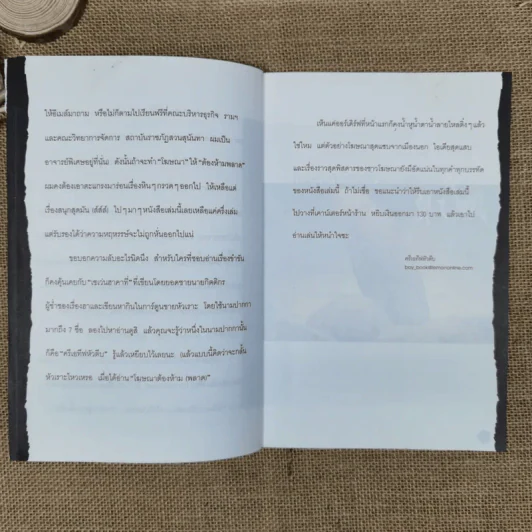 ให้อีเมล์มาถาม หรือไม่ก็ตามไปเรียนฟรีที่คณะบริหารธุรกิจ รามฯ
และคณะวิทยาการจัดการ สถาบันราชภัฏสวนสุนันทา ผมเป็น
อาจารย์พิเศษอยู่ที่นั่น) ดังนั้นถ้าจะทำ "โฆษณา" ให้ "ต้องห้ามพลาด"
ผมคงต้องเอาตะแกรงมาร่อนเรื่องหินๆ กรวดๆ ออกไป ให้เหลือแต่
เรื่องสนุกสุดมัน (ส์ส์ส์) ไปๆ มาๆ หนังสือเล่มนี้เลยเหลือแค่ครึ่งเล่ม
แต่รับรองได้ว่าความหฤหรรษ์จะไม่ถูกหั่นออกไปแน่
ขอบอกความลับอะไรนิดนึง สำหรับใครที่ชอบอ่านเรื่องขำขัน
ก็คงคุ้นเคยกับ "เชงวันสาคาที่" ที่เขียนโดยยอดชายนายกิตติกร
ผู้ช่ำชองเรื่องฮาและเขียนหากินในการ์ตูนขายหัวเราะ โดยใช้นามปากกา
มากถึง 7 ชื่อ ลองไปหาอ่านดูสิ แล้วคุณจะรู้ว่าหนึ่งในนามปากกานั้น
ก็คือ "ครีเอทีฟหัวตีบ" รู้แล้วเหยียบไว้เลยนะ (แล้วแบบนี้คิดว่าจะกลั้น
หัวเราะไหวเหรอ เมื่อได้อ่าน "โฆษณาต้องห้าม (พลาด)"
เห็นแค่ออร์เดิร์ฟที่หน้าแรกก็คงน้ำหูน้ำตาน้ำลายไหลติ๋งๆ แล้ว
ใช่ไหม แต่ตัวอย่างโฆษณาสุดแซบจากเมืองนอก ไอเดียสุดแสบ
และเรื่องราวสุดพิสดารของชาวโฆษณายังมีอัดแน่นในทุกคำทุกบรรทัด
ของหนังสือเล่มนี้ ถ้าไม่เชื่อ ขอแนะนำว่าให้รีบเอาหนังสือเล่มนี้
ไปวางที่เคาน์เตอร์หน้าร้าน หยิบเงินออกมา 130 บาท แล้วเอาไป
อ่านเล่นให้หนำใจซะ
ครีเอทีฟหัวตีบ